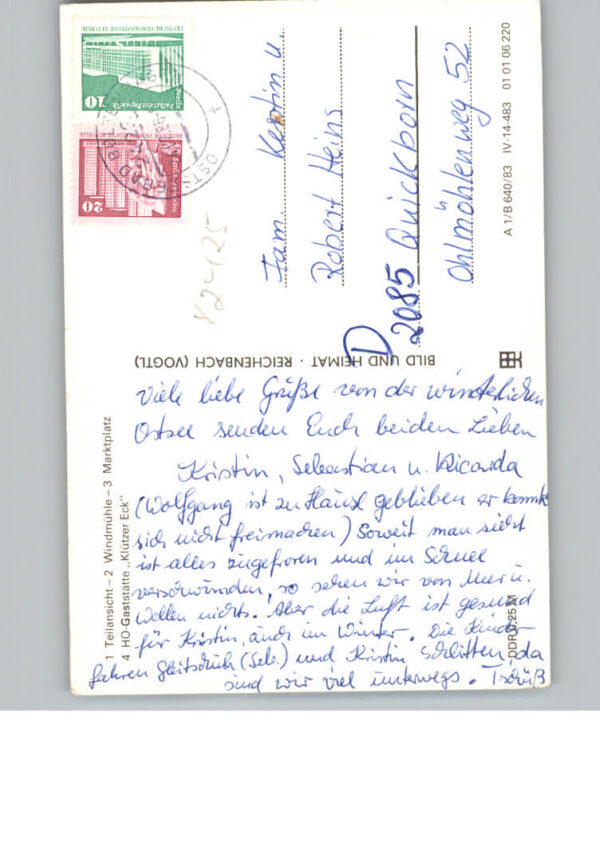 Viele liebe Grüße von der winterlichen
Ostsee senden Euch beiden Lieben
Kristin, Sebastian u. Ricarda
(Wolfgang ist zu Hause geblieben er konnte
sich nicht freimachen) Soweit man sieht
ist alles zugefroren und im Schnee
verschwunden, so sehen wir von Meer u.
Wellen nichts. Aber die Luft ist gesund
für Kristin, auch im Winter. Die Kinder
fahren Gleitschuh (Seb.) und Kristin Schlitten, da
sind wir viel unterwegs. Tschüß
Fam. Kerstin u.
Robert Heins
D
2085 Quickborn
Ohlmöhlenweg 52
1 Teilansicht – 2 Windmühle – 3 Marktplatz
4 HO-Gaststätte „Klützer Eck"
BILD UND HEIMAT · REICHENBACH (VOGTL)
A 1/B 640/83 IV-14-483 01 01 06 220
DDR 0,25 M
DEUTSCHE DEMOKRATISCHE REPUBLIK
10
Palast der Republik
Berlin
20
OSTS
BAD